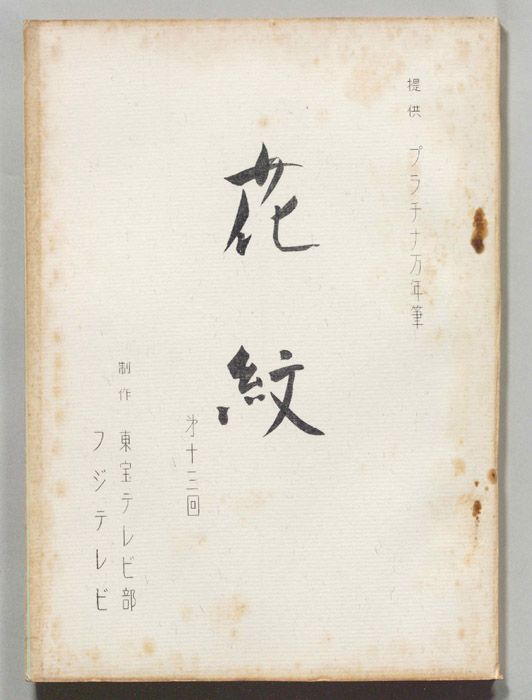 提供 プラチナ万年筆
花紋
第十三回
制作 東宝テレビ部
フジテレビ